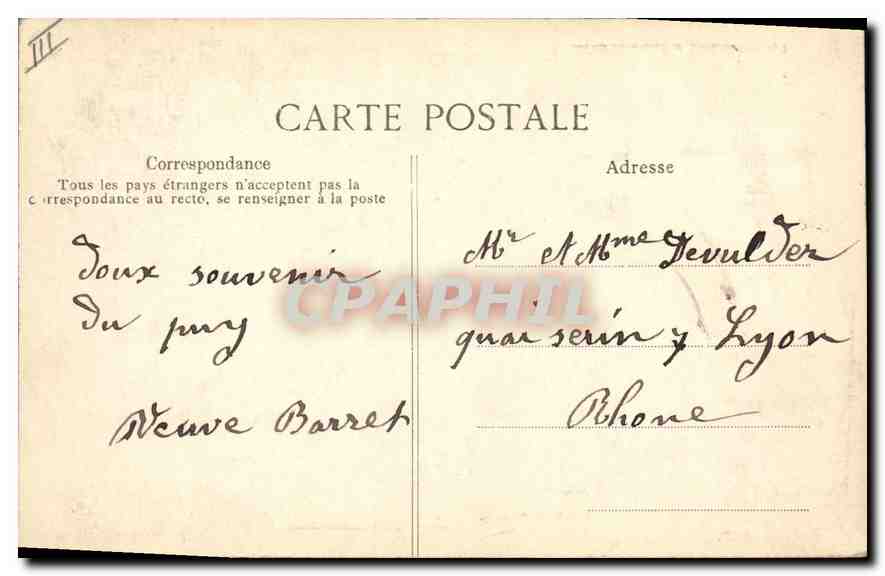 III
CARTE POSTALE
Correspondance
Tous les pays étrangers n'acceptent pas la
Correspondance au recto, se renseigner à la poste
doux souvenir
du puy
Veuve Barret
Adresse
Mr et Mme Devulder
quai serin 7 Lyon
Rhone
CPAPHIL